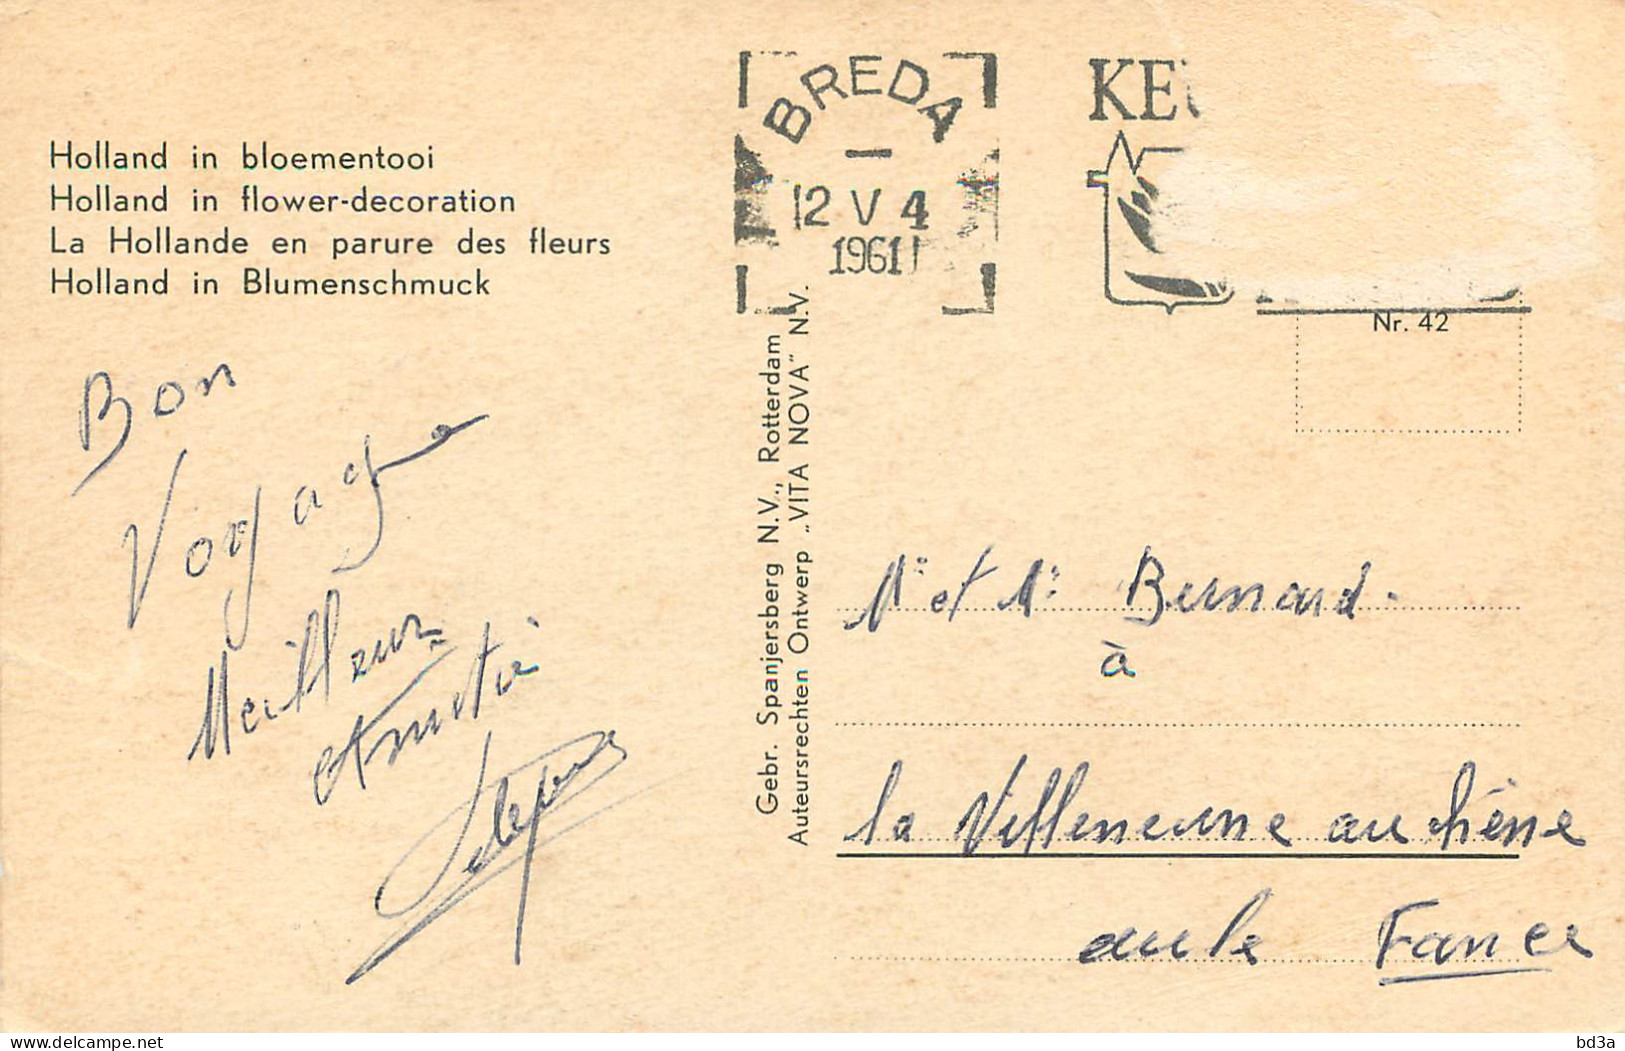 Holland in bloementooi
Holland in flower-decoration
La Hollande en parure des fleurs
Holland in Blumenschmuck
BREDA
12 V 4
1961
KEU
Nr. 42
Gebr. Spanjersberg N.V., Rotterdam
Auteursrechten Ontwerp „VITA NOVA" N.V.
Bon
Voyage
Meilleure
Amitié
Mr et Me Bernard.
à
la Villeneuve au chêne
aube France
www.delcampe.net
bd3a